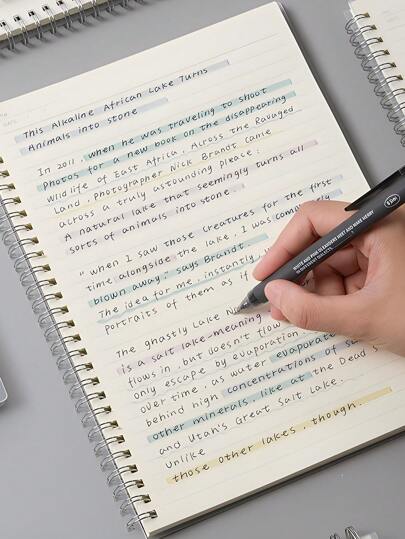 This Alkaline African Lake Turns
Animals into Stone
In 2011, when he was traveling to shoot
photos for a new book on the disappearing
wildlife of East Africa, Across the Ravaged
Land, photographer Nick Brandt came
across a truly astounding please:
A natural lake that seemingly turns all
sorts of animals into stone.
"when I saw those creatures for the first
time alongside the lake, I was completely
blown away." says Brandt.
The idea for me, instantly,
portraits of them as if
The ghastly Lake
is a salt lake-meaning
flows in, but doesn't flow
only escape by evaporation
over time, as water evaporate
behind high concentrations of
other minerals, like at the Dead S
and Utah's Great Salt Lake.
Unlike
those other lakes, though.